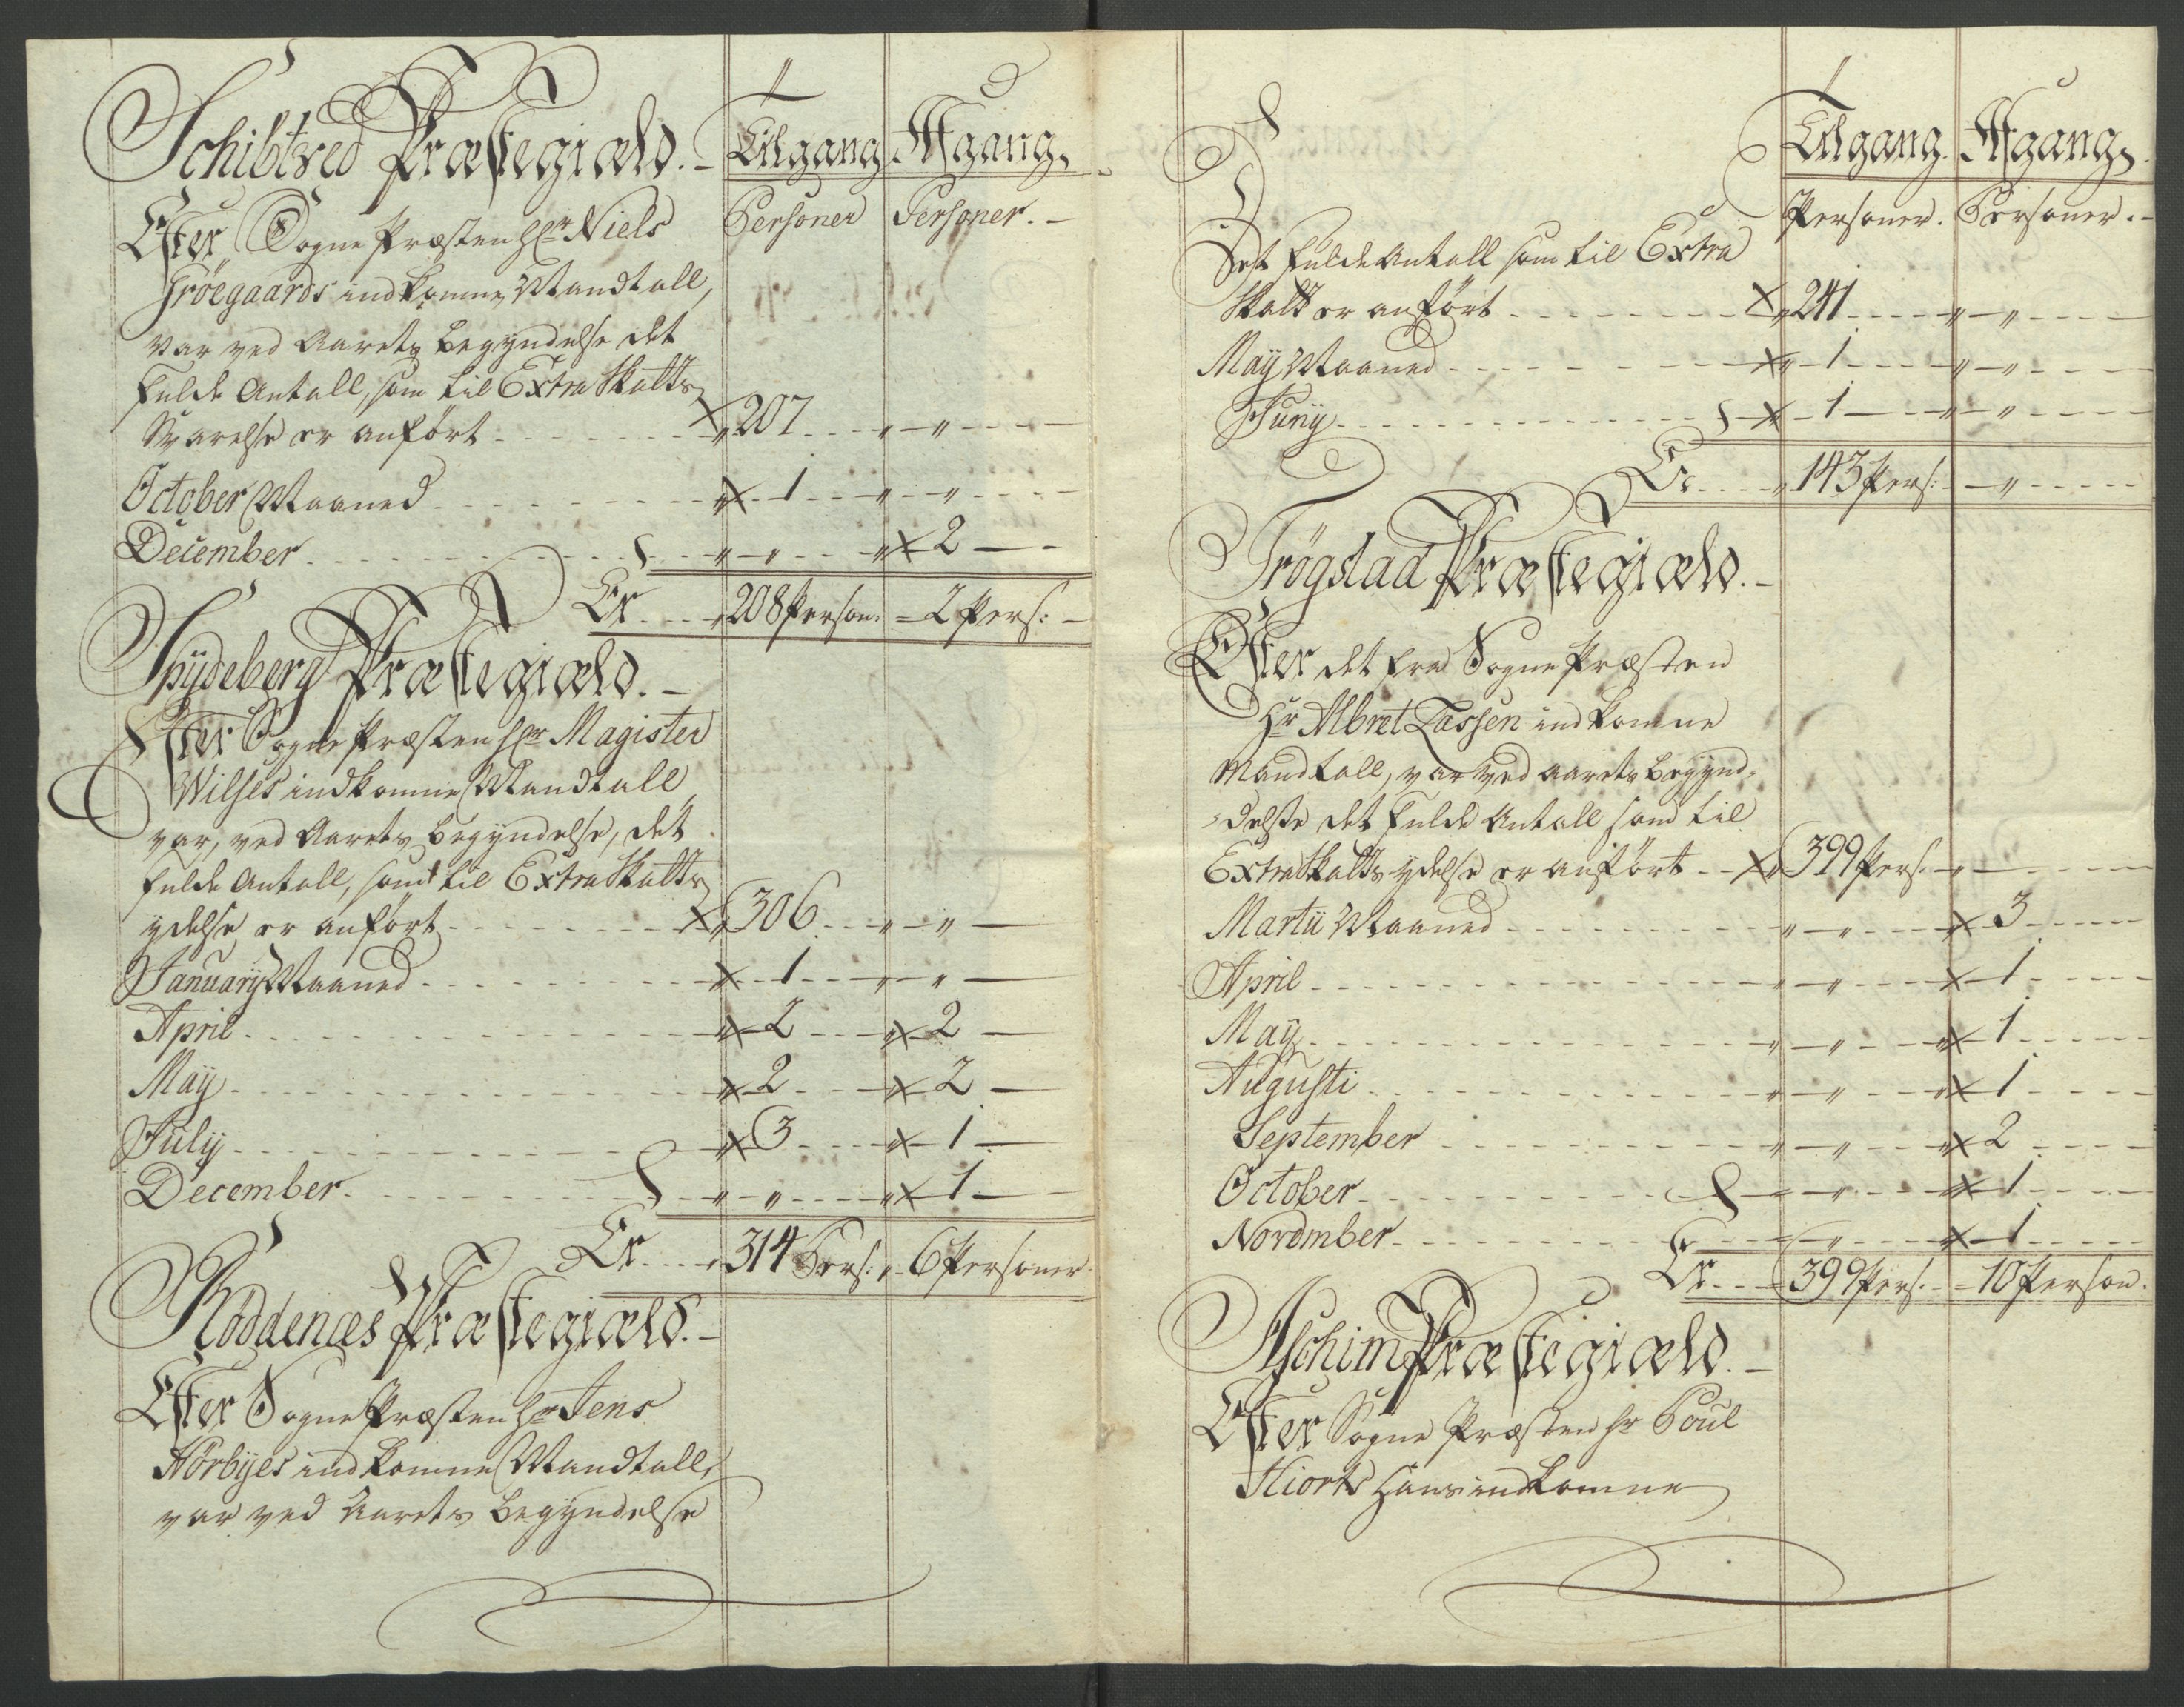 Schibtved Præstegiæld. Tilgang Afgang.
Efter Sogne Præsten Hr Niels Personer Personer.
Fröegaards indkomne Mandtall,
var ved Aarets Begyndelse det
fulde Antall, som til Extra Skatts
Svarelse er anført 207 " "
October Maaned 1 " "
December " " 2
Er 208 Person. 2 Pers:
Spydeberg Præstegiæld.
Efter Sogne Præsten Hr Magister
Wilses indkomne Mandtall
var, ved Aarets Begyndelse, det
fulde Antall, som til Extra Skatts
ydelse er anført 306 " "
January Maaned 1 " "
April 2 2
May 2 2
July 3 1
December " " 1
Er 314 Pers: 6 Personer
Röddenæs Præstegiæld.
Efter Sogne Præsten Hr Jens
Nörbyes indkomne Mandtall,
var ved Aarets Begyndelse
Tilgang. Afgang.
Personer. Personer.
Det fulde Antall som til Extra
Skatt er anført 241 " "
May Maaned 1 " "
Juny 1 " "
Er 143 Pers: "
Trögstad Præstegiæld.
Efter det fra Sogne Præsten
Hr Albret Lassen indkomne
Mandtall, var ved Aarets Begyn-
-delse det fulde Antall som til
Extra Skatts ydelse er anført 399 Pers. "
Marty Maaned " " 3
April " " 1
May " " 1
Augusti " " 1
September " " 2
October " " 1
Novdmber " 1
Er 399 Pers. 10 Person.
Aschim Præstegiæld.
Efter Sogne Præsten Hr Poul
Hiorts Hans indkomne